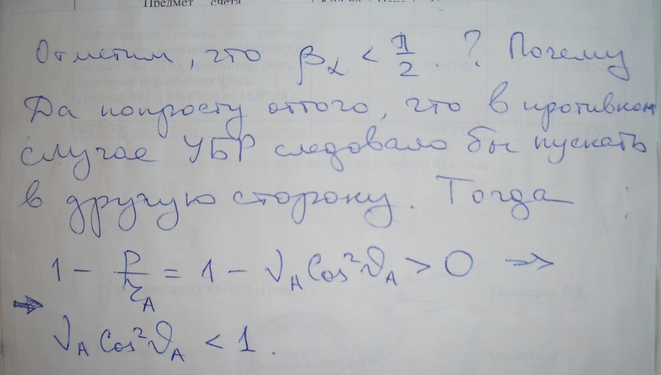 Предмет счета
Отметим, что β_α < 1/2. ? Почему
Да попросту оттого, что в противном
случае УБР следовало бы пускать
в другую сторону. Тогда
1 - p/r_A = 1 - ν_A Cos²ϑ_A > 0 ⇒
⇒ ν_A Cos²ϑ_A < 1.